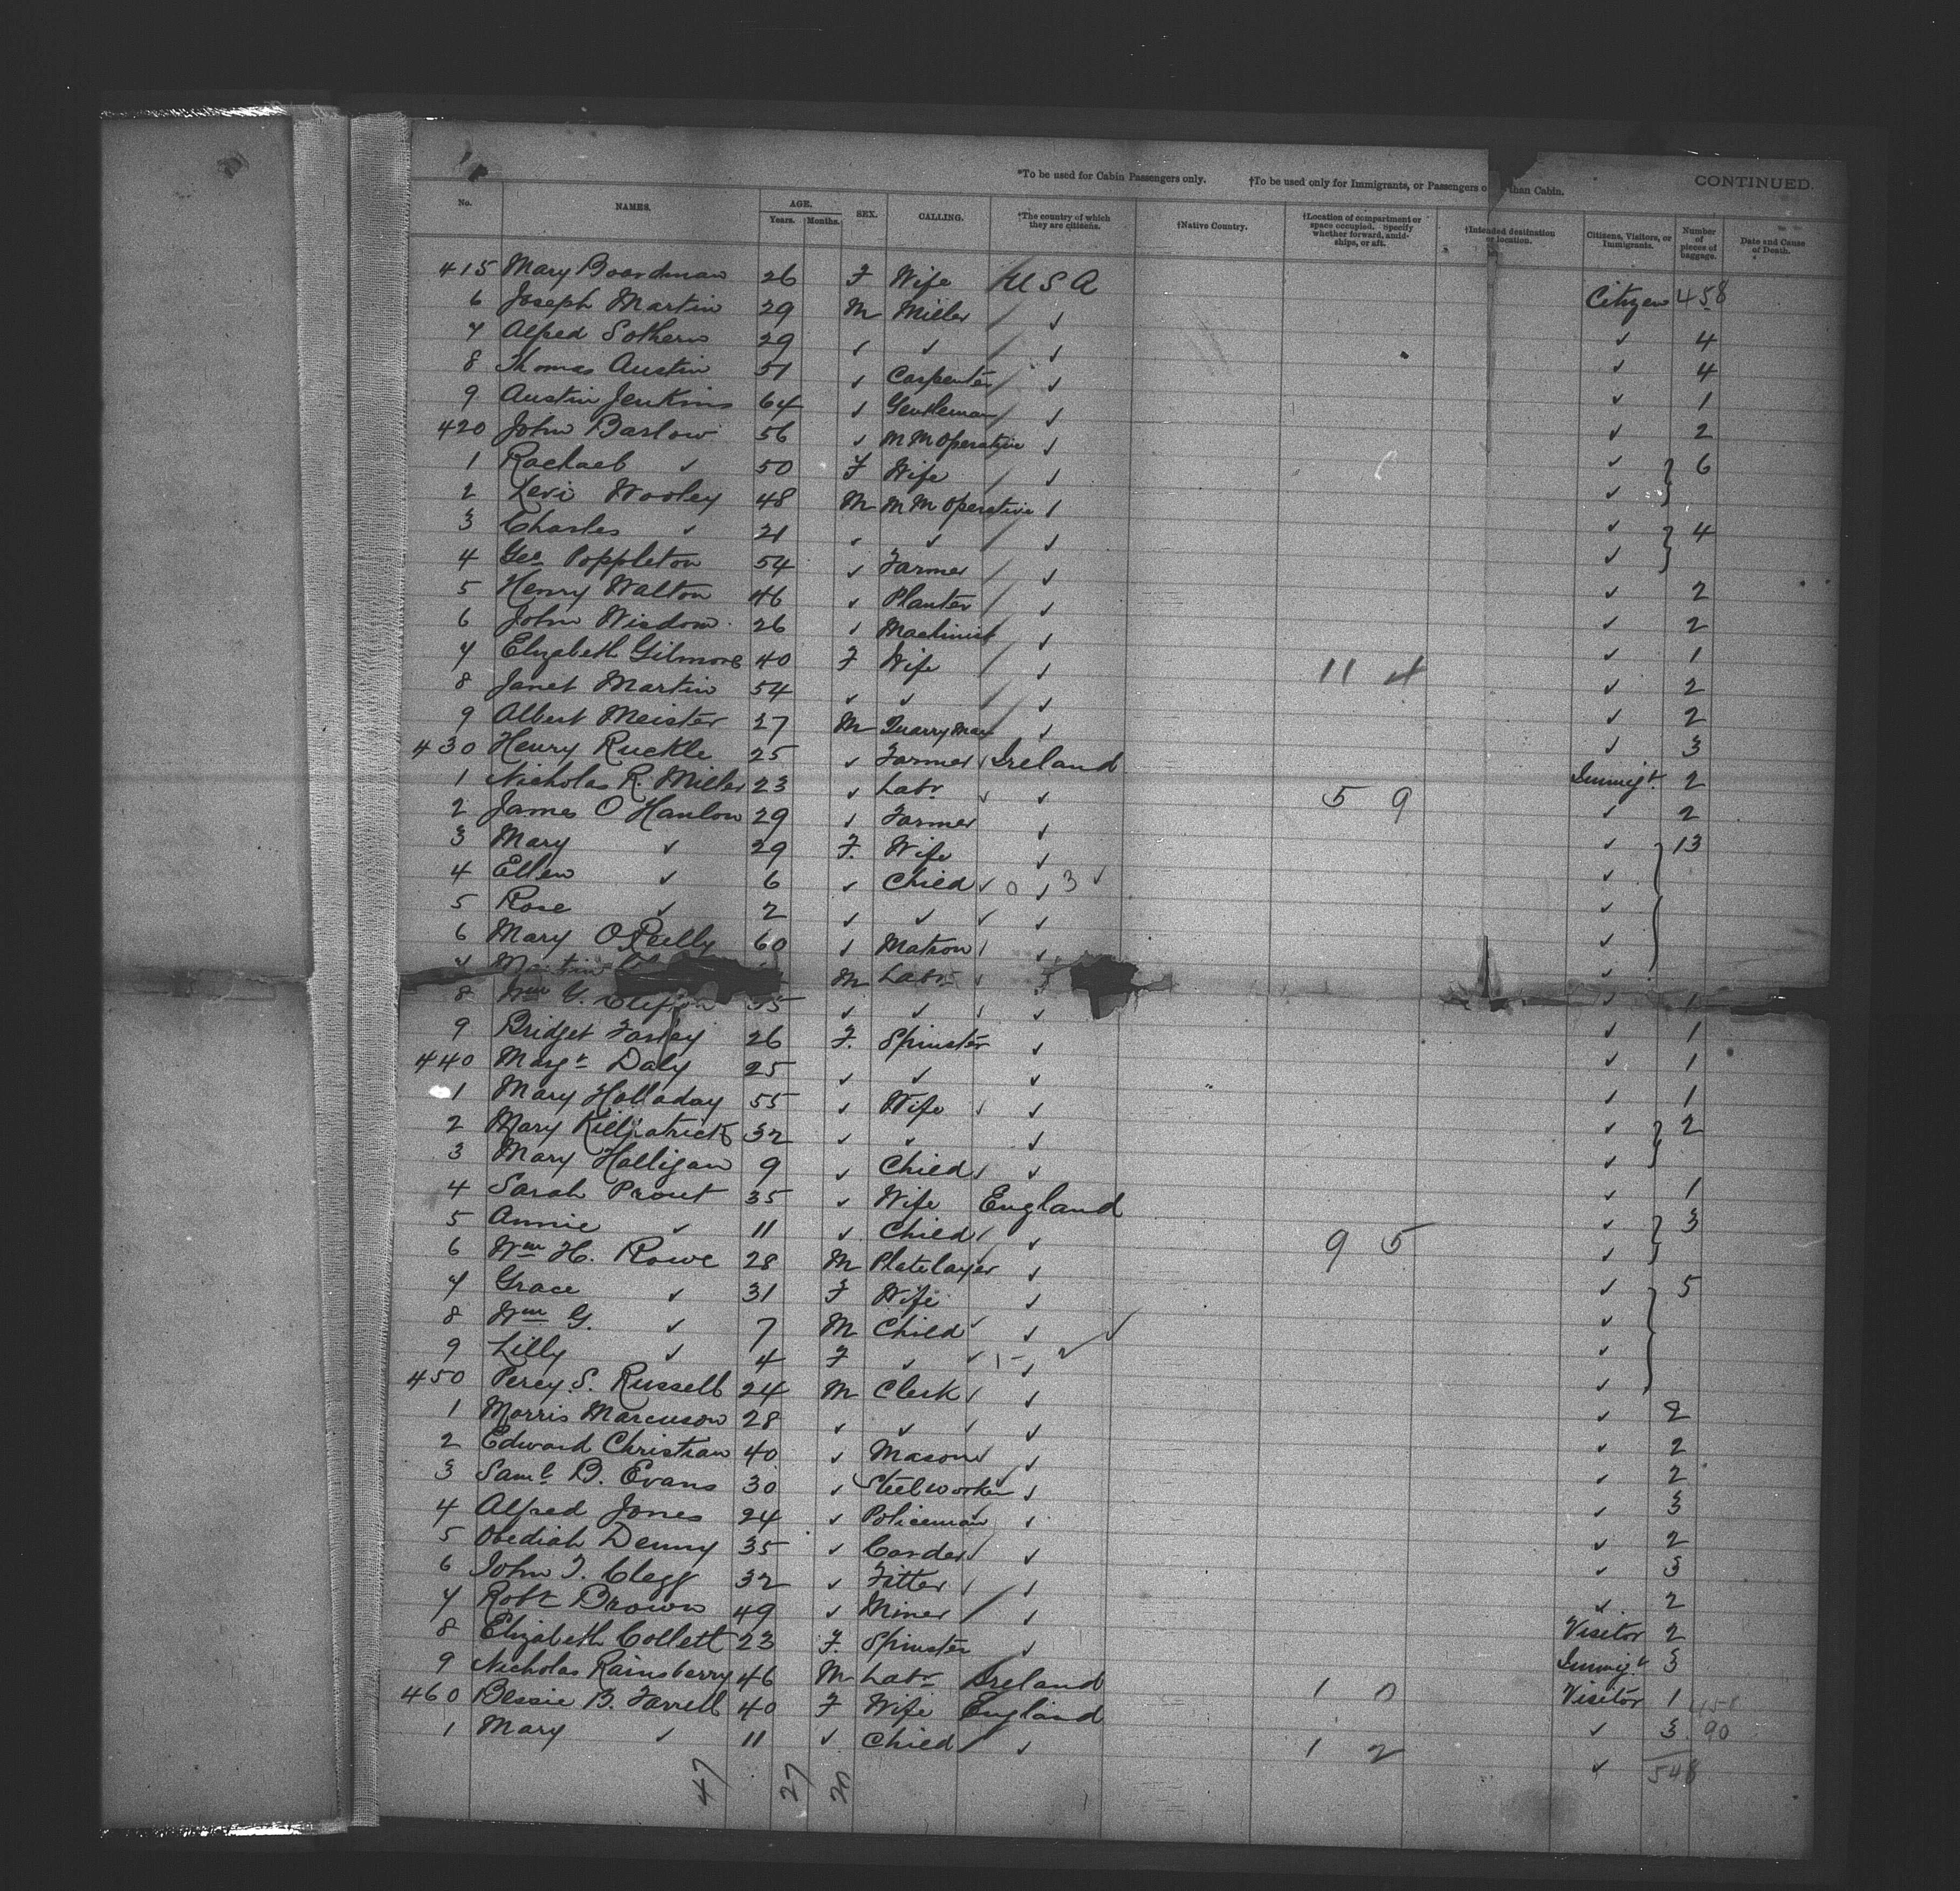 *To be used for Cabin Passengers only. †To be used only for Immigrants, or Passengers o than Cabin. CONTINUED.
No. NAMES. AGE. Years. Months. SEX. CALLING. *The country of which they are citizens. †Native Country. †Location of compartment or space occupied. Specify whether forward, amidships, or aft. †Intended destination or location. Citizens, Visitors, or Immigrants. Number of pieces of baggage. Date and Cause of Death.
415 Mary Boardman 26 F Wife / U S A Citizen 458
6 Joseph Martin 29 M Miller / ✓ ✓ 4
7 Alfred Sothern 29 ✓ ✓ / ✓ ✓ 4
8 Thomas Austin 51 ✓ Carpenter / ✓ ✓ 1
9 Austin Jenkins 64 ✓ Gentleman / ✓ ✓ 2
420 John Barlow 56 ✓ M M Operative ✓ ✓ 6
1 Rachael ✓ 50 F Wife / ✓ ✓
2 Levi Wooley 48 M M M Operative ✓ ✓ 4
3 Charles ✓ 21 ✓ ✓ / ✓ ✓
4 Geo Poppleton 54 ✓ Farmer / ✓ ✓ 2
5 Henry Walton 46 ✓ Planter / ✓ ✓ 2
6 John Wisdom 26 ✓ Machinist / ✓ ✓ 1
7 Elizabeth Gilmore 40 F Wife / ✓ 11 4 ✓ 2
8 Janet Martin 54 ✓ ✓ / ✓ ✓ 2
9 Albert Meister 27 M Quarryman ✓ ✓ 3
430 Henry Ruckle 25 ✓ Farmer Ireland Immigt. 2
1 Nicholas R. Miller 23 ✓ Labr ✓ ✓ 5 9 ✓ 2
2 James O'Hanlon 29 ✓ Farmer ✓ ✓ 13
3 Mary ✓ 29 F. Wife ✓ ✓
4 Ellen ✓ 6 ✓ Child ✓ 0 ✓ 3 ✓ ✓
5 Rose ✓ 2 ✓ ✓ ✓ ✓ ✓
6 Mary O'Reilly 60 ✓ Matron ✓ ✓
7 Martin M Labr ✓ ✓ 1
8 Wm G. 35 ✓ ✓ ✓ ✓ 1
9 Bridget Farley 26 F. Spinster ✓ ✓ 1
440 Margt Daly 25 ✓ ✓ ✓ ✓ 1
1 Mary Holladay 55 ✓ Wife ✓ ✓ ✓ 2
2 Mary Killpatrick 32 ✓ ✓ ✓ ✓
3 Mary Halligan 9 ✓ Child ✓ ✓ ✓ 1
4 Sarah Prout 35 ✓ Wife England ✓ 3
5 Annie ✓ 11 ✓ Child ✓ 9 5 ✓
6 Wm H. Rowe 28 M Platelayer ✓ ✓ 5
7 Grace ✓ 31 F Wife ✓ ✓
8 Wm G. ✓ 7 M Child ✓ ✓ ✓ ✓
9 Lilly ✓ 4 F ✓ ✓ ✓ ✓
450 Percy S. Russell 24 M Clerk ✓ ✓ 2
1 Morris Marcuson 28 ✓ ✓ ✓ ✓ 2
2 Edward Christian 40 ✓ Mason ✓ ✓ 2
3 Saml B. Evans 30 ✓ Steelworker ✓ ✓ 3
4 Alfred Jones 24 ✓ Policeman ✓ ✓ 2
5 Obediah Denny 35 ✓ Carder ✓ ✓ 3
6 John T. Clegg 32 ✓ Fitter / ✓ ✓ 2
7 Robt Brown 49 ✓ Miner / ✓ Visitor 2
8 Elizabeth Collett 23 F. Spinster ✓ Immigt 3
9 Nicholas Rainsberry 46 M Labr Ireland 1 0 Visitor 1 458
460 Bessie B. Farrell 40 F Wife England ✓ 3 90
1 Mary ✓ 11 ✓ Child / ✓ 1 2 ✓ 548
47 27 20